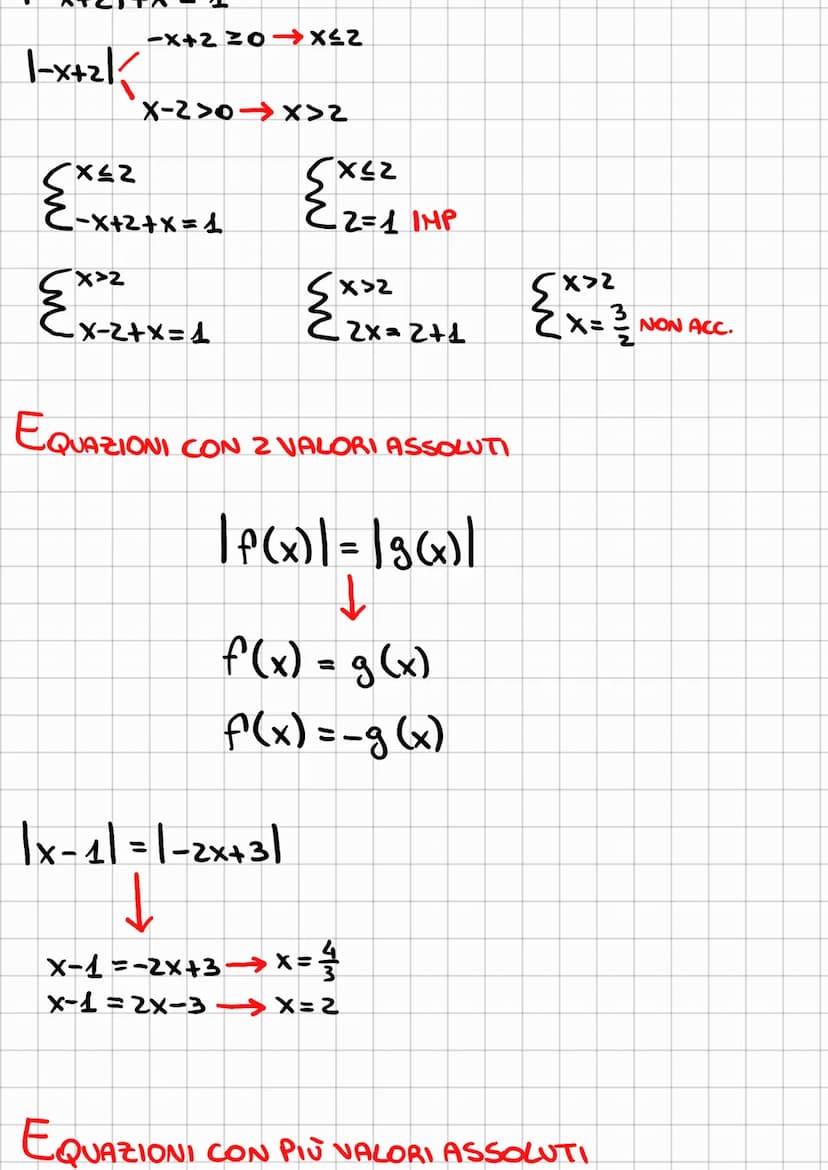 -x+2 ≥0 → x≤2
|-x+2|
x-2>0 → x>2
{x≤2 {x≤2
-x+2+x=1 2=1 IMP
{x>2 {x>2 {x>2
x-2+x=1 2x=2+1 x=3/2 NON ACC.
EQUAZIONI CON 2 VALORI ASSOLUTI
|f(x)|=|g(x)|
↓
f(x) = g(x)
f(x) =-g(x)
|x-1|=|-2x+3|
↓
x-1=-2x+3 → x=4/3
x-1=2x-3 → x=2
EQUAZIONI CON PIÙ VALORI ASSOLUTI